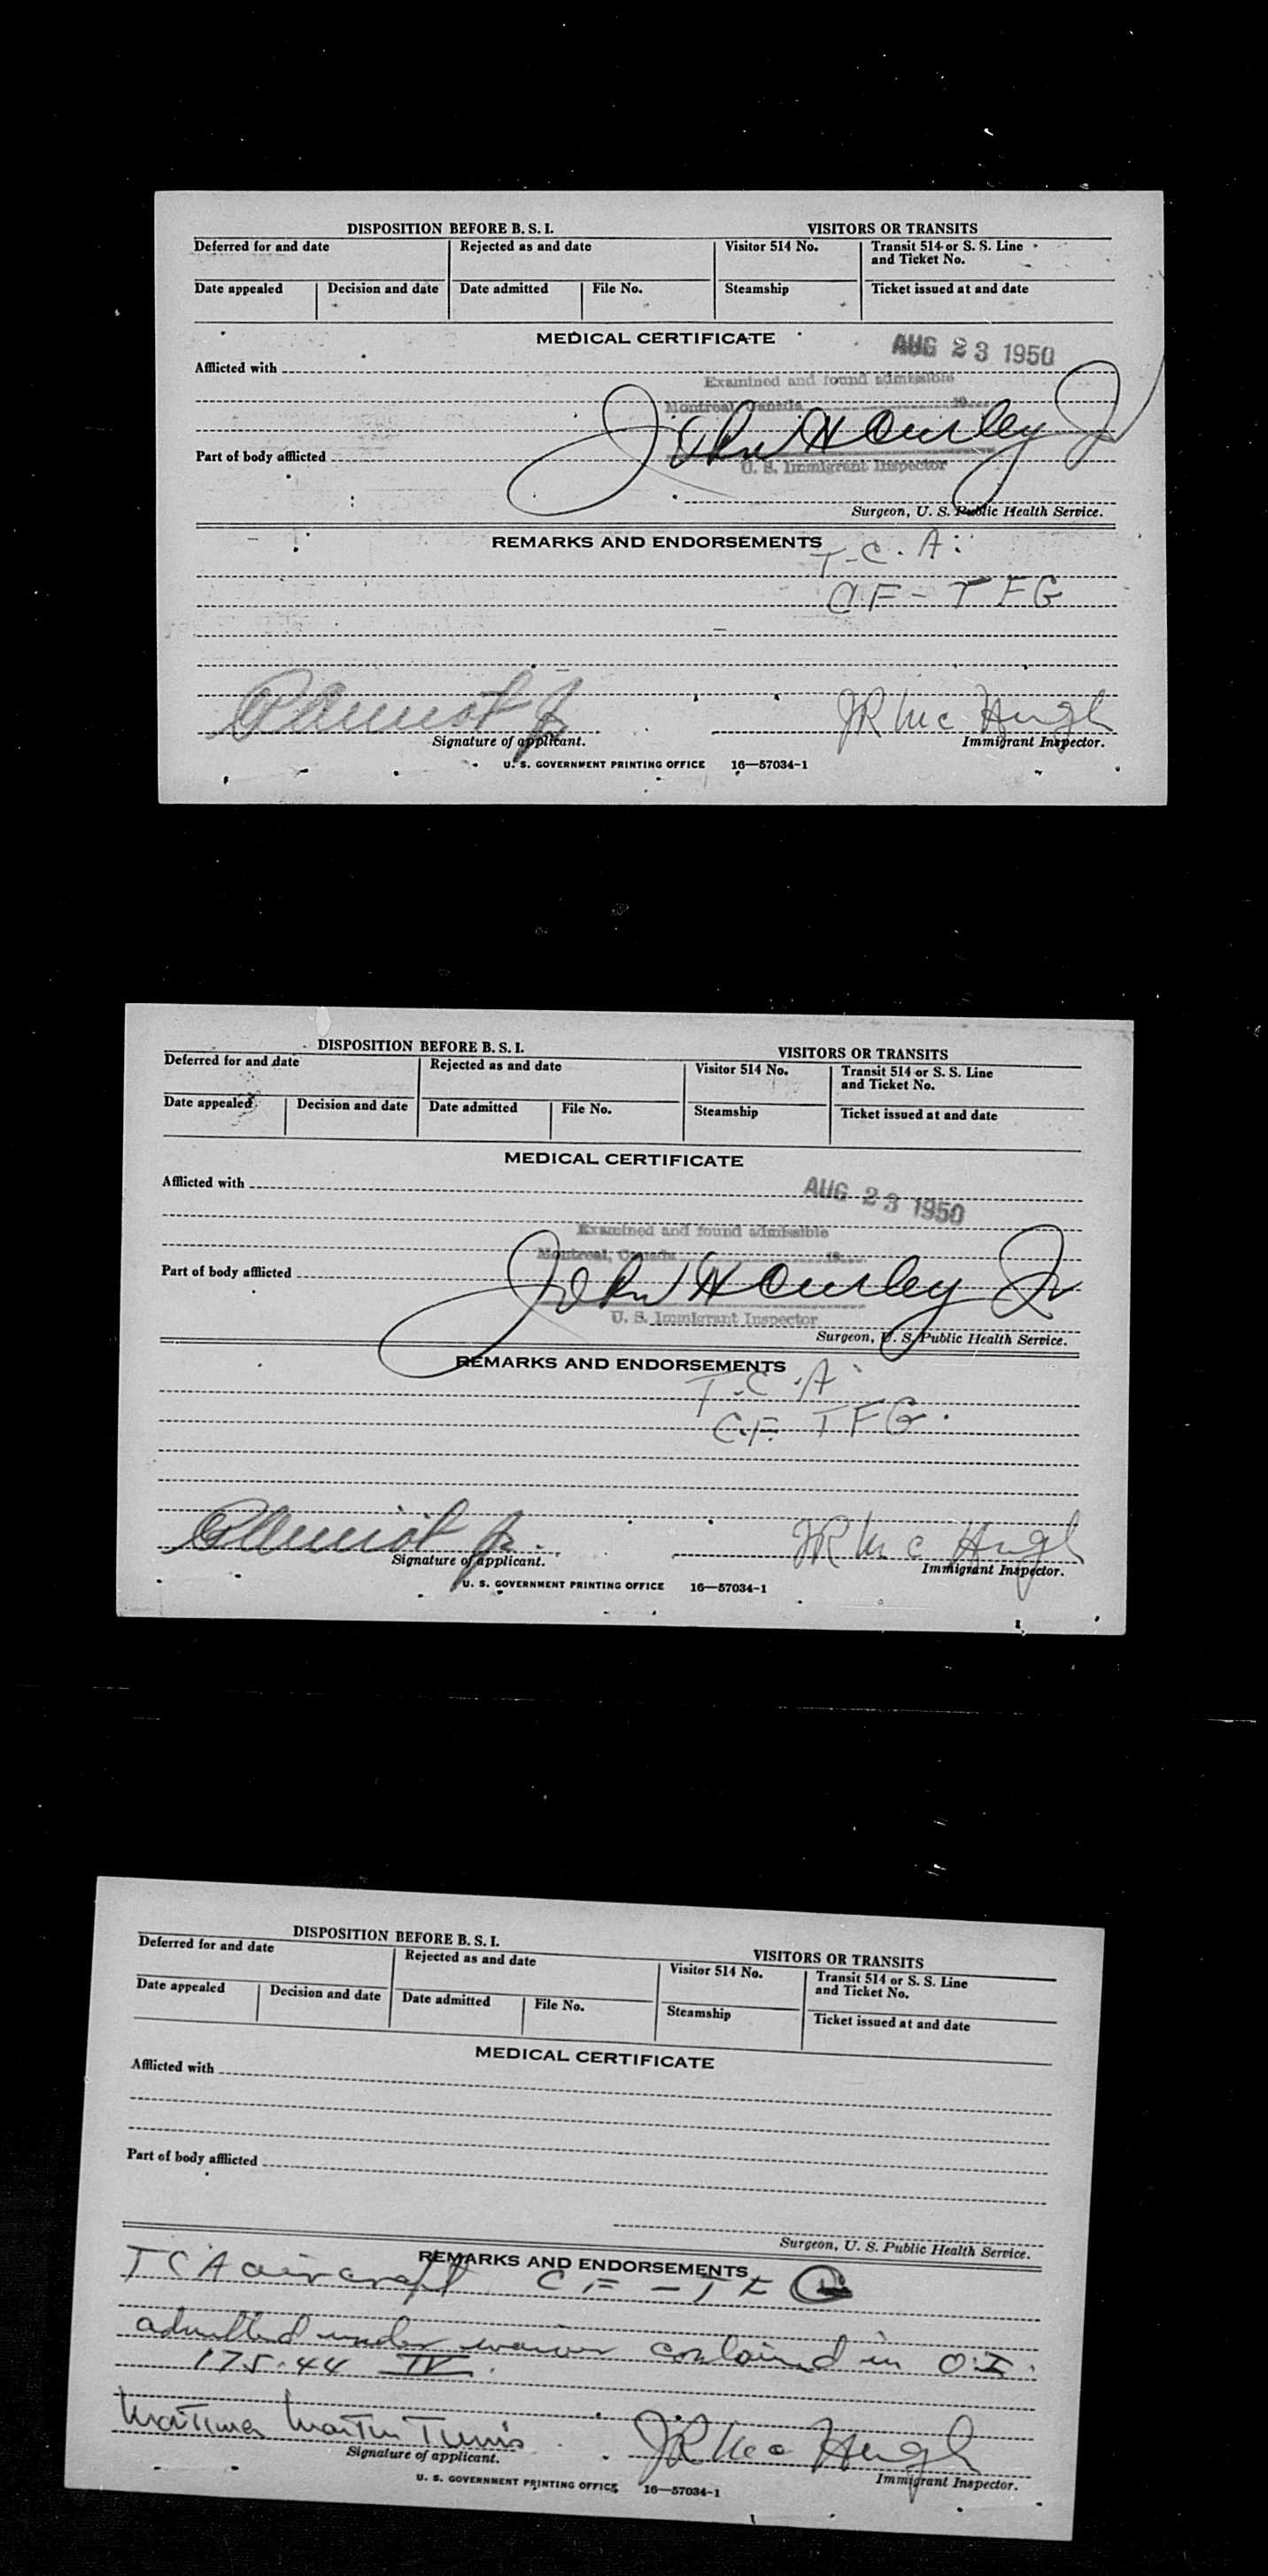 DISPOSITION BEFORE B. S. I. VISITORS OR TRANSITS
Deferred for and date Rejected as and date Visitor 514 No. Transit 514 or S. S. Line
and Ticket No.
Date appealed Decision and date Date admitted File No. Steamship Ticket issued at and date
MEDICAL CERTIFICATE
AUG 23 1950
Afflicted with
Examined and found admissible
Montreal, Canada 19
John H Curley Jr
Part of body afflicted
U. S. Immigrant Inspector
Surgeon, U. S. Public Health Service.
REMARKS AND ENDORSEMENTS
T.C.A.
CF-TFG
JR McHugh
Signature of applicant. Immigrant Inspector.
U. S. GOVERNMENT PRINTING OFFICE 16—57034-1
DISPOSITION BEFORE B. S. I. VISITORS OR TRANSITS
Deferred for and date Rejected as and date Visitor 514 No. Transit 514 or S. S. Line
and Ticket No.
Date appealed Decision and date Date admitted File No. Steamship Ticket issued at and date
MEDICAL CERTIFICATE
Afflicted with
AUG 23 1950
Examined and found admissible
Montreal, Canada 19
Part of body afflicted
John H Curley Jr
U. S. Immigrant Inspector
Surgeon, U. S. Public Health Service.
REMARKS AND ENDORSEMENTS
T.C.A
C.F. TFG.
JR McHugh
Signature of applicant. Immigrant Inspector.
U. S. GOVERNMENT PRINTING OFFICE 16—57034-1
DISPOSITION BEFORE B. S. I. VISITORS OR TRANSITS
Deferred for and date Rejected as and date Visitor 514 No. Transit 514 or S. S. Line
and Ticket No.
Date appealed Decision and date Date admitted File No. Steamship Ticket issued at and date
MEDICAL CERTIFICATE
Afflicted with
Part of body afflicted
Surgeon, U. S. Public Health Service.
REMARKS AND ENDORSEMENTS
TCA aircraft CF-TFG
admitted under waiver contained in O.I.
175.44 IV.
Martin Tunis JR McHugh
Signature of applicant. Immigrant Inspector.
U. S. GOVERNMENT PRINTING OFFICE 16—57034-1